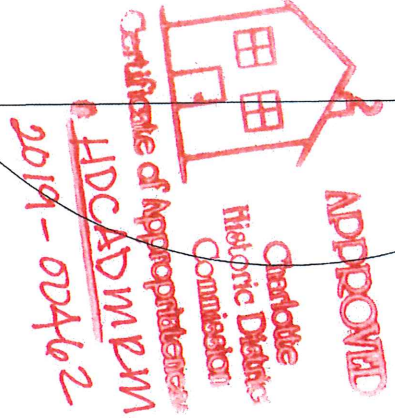 APPROVED
Charlotte
Historic District
Commission
Certificate of Appropriateness
# HDCADMRM
2019-00462